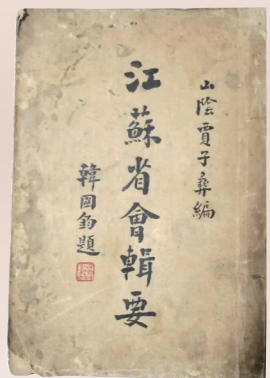 山陰賈子彝編
江蘇省會輯要
韓國鈞題